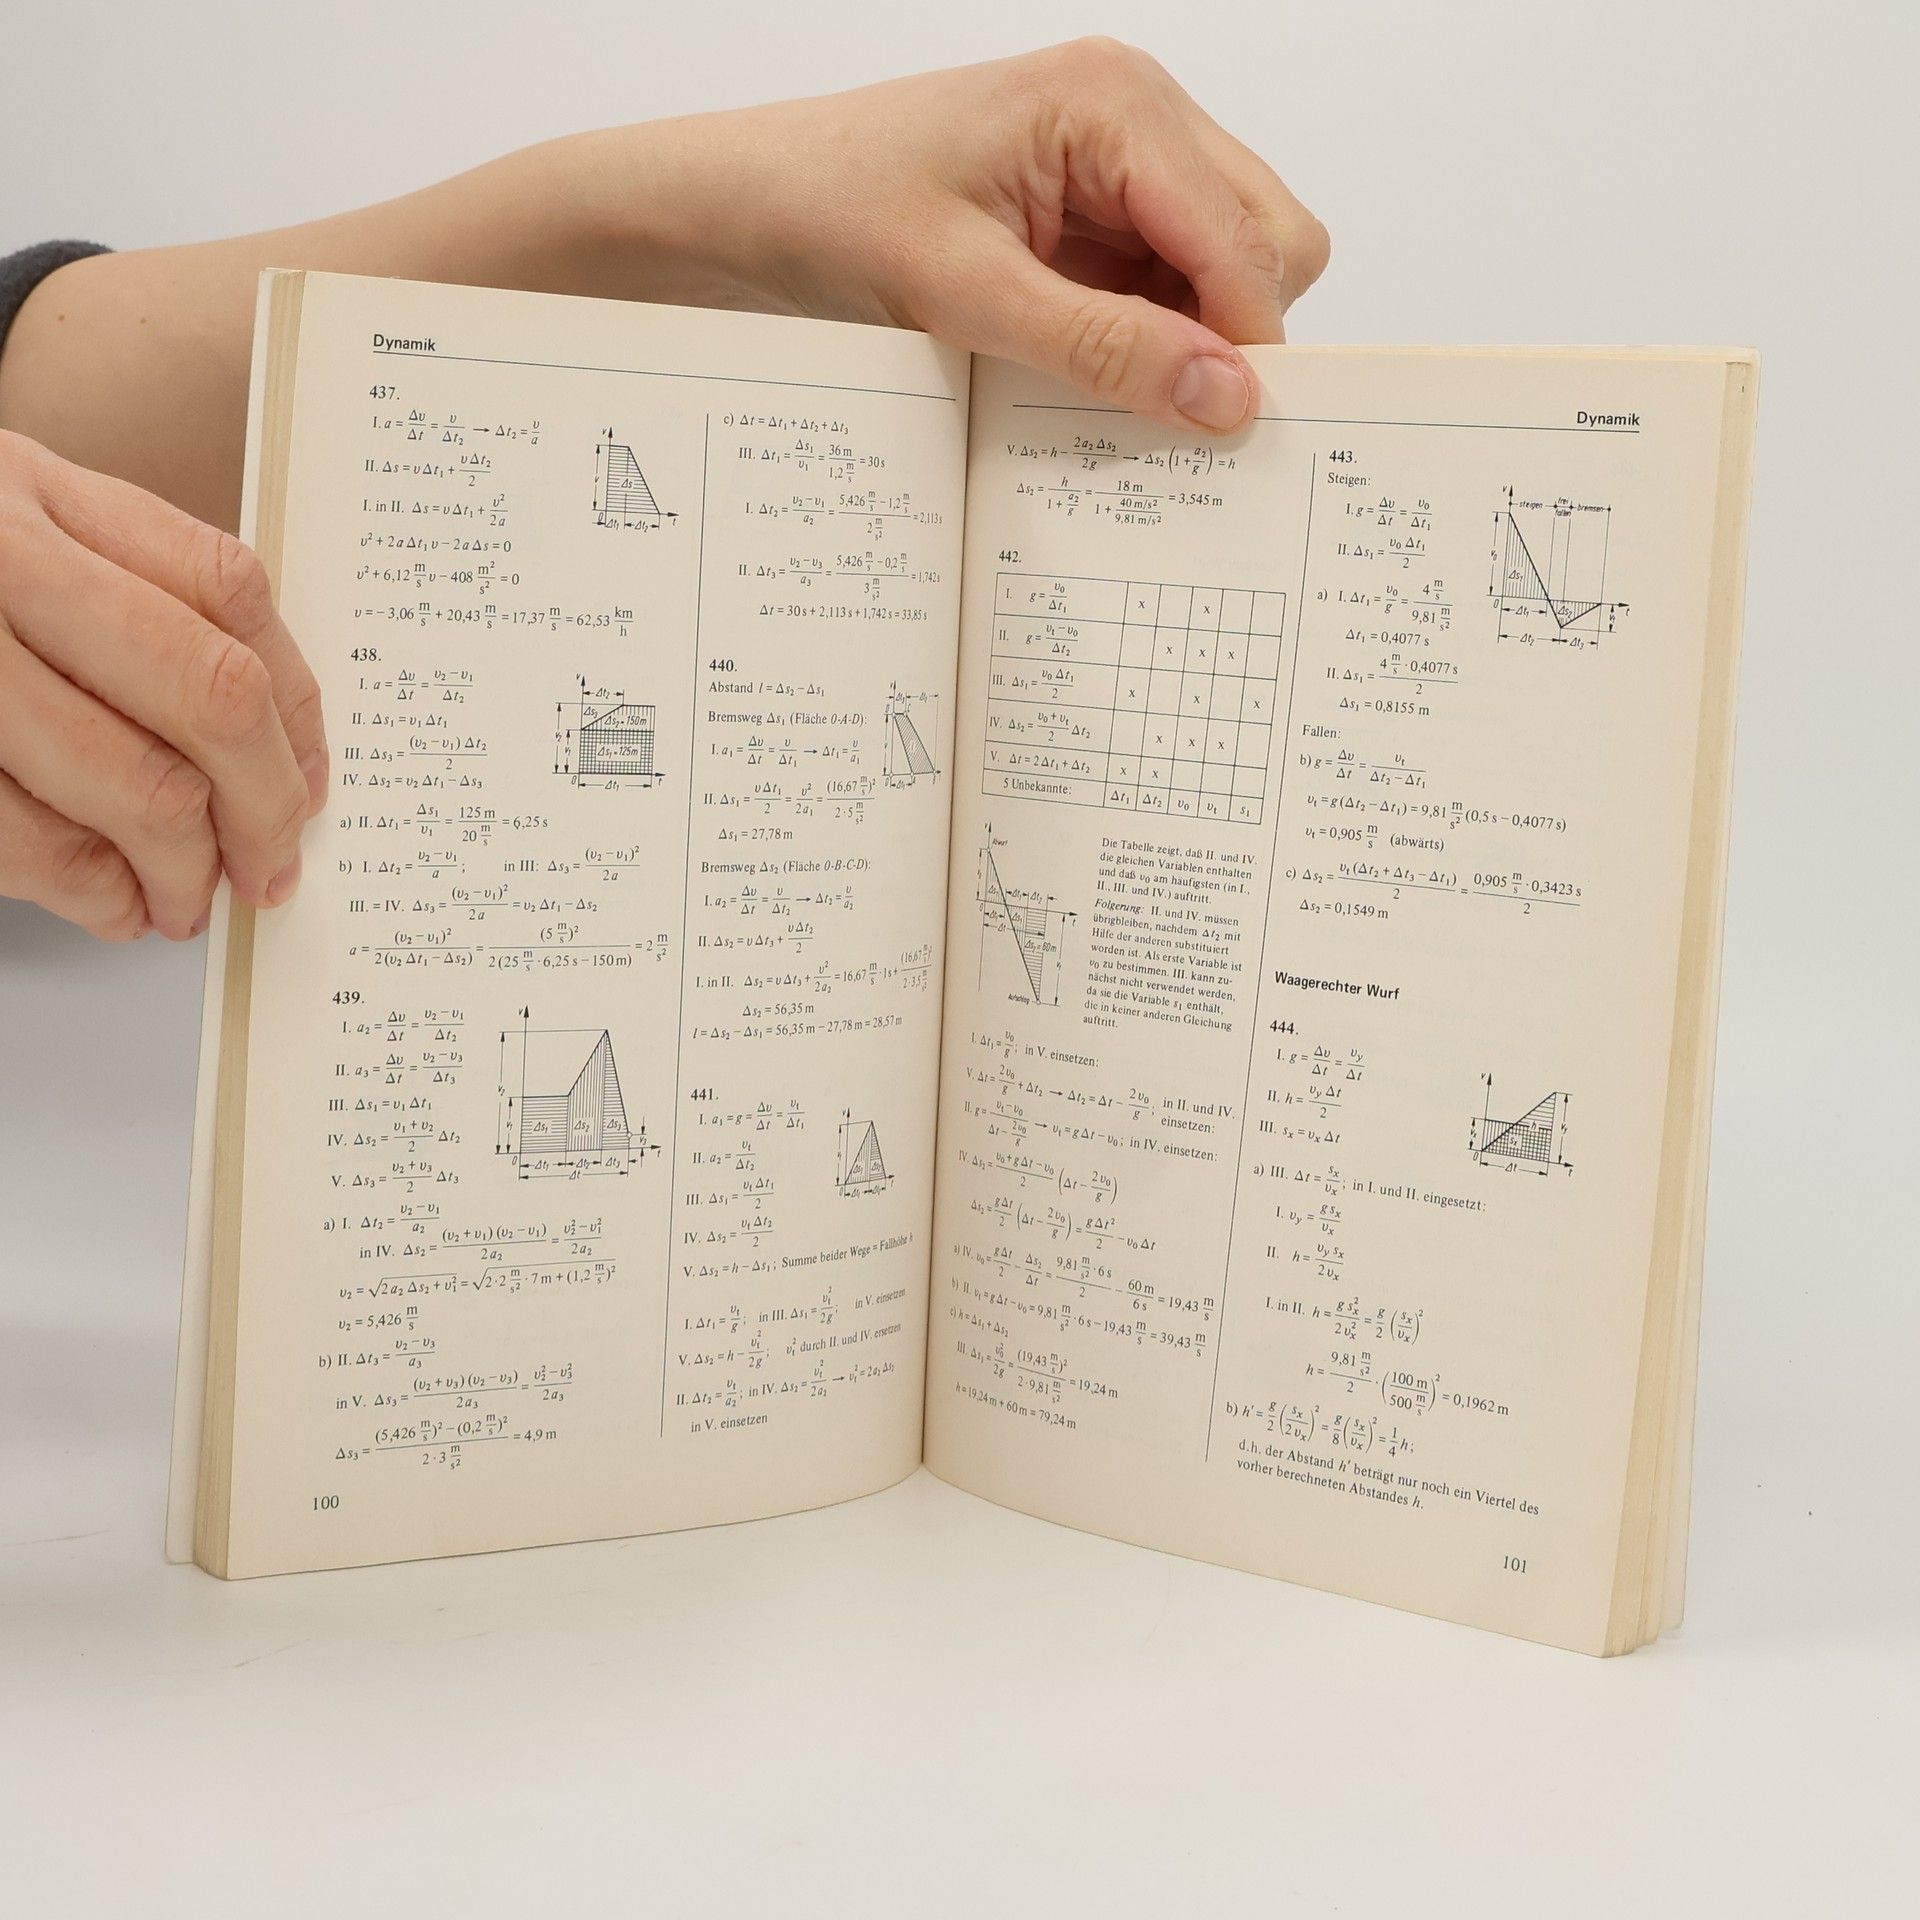 Dynamik
437.
I. a = Δv/Δt = v/Δt₂ → Δt₂ = v/a
II. Δs = v Δt₁ + v Δt₂/2
I. in II. Δs = v Δt₁ + v²/2a
v² + 2a Δt₁ v − 2a Δs = 0
v² + 6,12 m/s v − 408 m²/s² = 0
v = − 3,06 m/s + 20,43 m/s = 17,37 m/s = 62,53 km/h
438.
I. a = Δv/Δt = (v₂ − v₁)/Δt₂
II. Δs₁ = v₁ Δt₁
III. Δs₃ = (v₂ − v₁) Δt₂/2
IV. Δs₂ = v₂ Δt₁ − Δs₃
Δs₂ = 150m
Δs₁ = 125m
a) II. Δt₁ = Δs₁/v₁ = 125 m/(20 m/s) = 6,25 s
b) I. Δt₂ = (v₂ − v₁)/a; in III: Δs₃ = (v₂ − v₁)²/2a
III. = IV. Δs₃ = (v₂ − v₁)²/2a = v₂ Δt₁ − Δs₂
a = (v₂ − v₁)²/2(v₂ Δt₁ − Δs₂) = (5 m/s)²/2(25 m/s · 6,25 s − 150 m) = 2 m/s²
439.
I. a₂ = Δv/Δt = (v₂ − v₁)/Δt₂
II. a₃ = Δv/Δt = (v₂ − v₃)/Δt₃
III. Δs₁ = v₁ Δt₁
IV. Δs₂ = (v₁ + v₂)/2 Δt₂
V. Δs₃ = (v₂ + v₃)/2 Δt₃
a) I. Δt₂ = (v₂ − v₁)/a₂
in IV. Δs₂ = (v₂ + v₁)(v₂ − v₁)/2a₂ = (v₂² − v₁²)/2a₂
v₂ = √(2a₂ Δs₂ + v₁²) = √(2 · 2 m/s² · 7 m + (1,2 m/s)²)
v₂ = 5,426 m/s
b) II. Δt₃ = (v₂ − v₃)/a₃
in V. Δs₃ = (v₂ + v₃)(v₂ − v₃)/2a₃ = (v₂² − v₃²)/2a₃
Δs₃ = ((5,426 m/s)² − (0,2 m/s)²)/(2 · 3 m/s²) = 4,9 m
100
c) Δt = Δt₁ + Δt₂ + Δt₃
III. Δt₁ = Δs₁/v₁ = 36 m/(1,2 m/s) = 30 s
I. Δt₂ = (v₂ − v₁)/a₂ = (5,426 m/s − 1,2 m/s)/(2 m/s²) = 2,113 s
II. Δt₃ = (v₂ − v₃)/a₃ = (5,426 m/s − 0,2 m/s)/(3 m/s²) = 1,742 s
Δt = 30 s + 2,113 s + 1,742 s = 33,85 s
440.
Abstand l = Δs₂ − Δs₁
Bremsweg Δs₁ (Fläche 0-A-D):
I. a₁ = Δv/Δt = v/Δt₁ → Δt₁ = v/a₁
II. Δs₁ = v Δt₁/2 = v²/2a₁ = (16,67 m/s)²/(2 · 5 m/s²)
Δs₁ = 27,78 m
Bremsweg Δs₂ (Fläche 0-B-C-D):
I. a₂ = Δv/Δt = v/Δt₂ → Δt₂ = v/a₂
II. Δs₂ = v Δt₃ + v Δt₂/2
I. in II. Δs₂ = v Δt₃ + v²/2a₂ = 16,67 m/s · 1s + (16,67 m/s)²/(2 · 3,5 m/s²)
Δs₂ = 56,35 m
l = Δs₂ − Δs₁ = 56,35 m − 27,78 m = 28,57 m
441.
I. a₁ = g = Δv/Δt = vt/Δt₁
II. a₂ = vt/Δt₂
III. Δs₁ = vt Δt₁/2
IV. Δs₂ = vt Δt₂/2
V. Δs₂ = h − Δs₁; Summe beider Wege = Fallhöhe h
I. Δt₁ = vt/g; in III. Δs₁ = vt²/2g; in V. einsetzen
V. Δs₂ = h − vt²/2g; vt² durch II. und IV. ersetzen
II. Δt₂ = vt/a₂; in IV. Δs₂ = vt²/2a₂ → vt² = 2a₂ Δs₂
in V. einsetzen
Dynamik
V. Δs₂ = h − 2a₂ Δs₂/2g → Δs₂ (1 + a₂/g) = h
Δs₂ = h/(1 + a₂/g) = 18 m/(1 + 40 m/s²/9,81 m/s²) = 3,545 m
442.
I. g = v₀/Δt₁ x x
II. g = (vt − v₀)/Δt₂ x x x
III. Δs₁ = v₀ Δt₁/2 x x x
IV. Δs₂ = (v₀ + vt)/2 Δt₂ x x x
V. Δt = 2Δt₁ + Δt₂ x x
5 Unbekannte: Δt₁ Δt₂ v₀ vt s₁
Abwurf
Δs₂ = 60m
Aufschlag
Die Tabelle zeigt, daß II. und IV.
die gleichen Variablen enthalten
und daß v₀ am häufigsten (in I.,
II., III. und IV.) auftritt.
Folgerung: II. und IV. müssen
übrigbleiben, nachdem Δt₂ mit
Hilfe der anderen substituiert
worden ist. Als erste Variable ist
v₀ zu bestimmen. III. kann zu-
nächst nicht verwendet werden,
da sie die Variable s₁ enthält,
die in keiner anderen Gleichung
auftritt.
I. Δt₁ = v₀/g; in V. einsetzen:
V. Δt = 2v₀/g + Δt₂ → Δt₂ = Δt − 2v₀/g; in II. und IV.
einsetzen:
II. g = (vt − v₀)/(Δt − 2v₀/g) → vt = g Δt − v₀; in IV. einsetzen:
IV. Δs₂ = (v₀ + g Δt − v₀)/2 (Δt − 2v₀/g)
Δs₂ = g Δt/2 (Δt − 2v₀/g) = g Δt²/2 − v₀ Δt
a) IV. v₀ = g Δt/2 − Δs₂/Δt = (9,81 m/s² · 6 s)/2 − 60 m/6 s = 19,43 m/s
b) II. vt = g Δt − v₀ = 9,81 m/s² · 6 s − 19,43 m/s = 39,43 m/s
c) h = Δs₁ + Δs₂
III. Δs₁ = v₀²/2g = (19,43 m/s)²/(2 · 9,81 m/s²) = 19,24 m
h = 19,24 m + 60 m = 79,24 m
443.
Steigen:
I. g = Δv/Δt = v₀/Δt₁
II. Δs₁ = v₀ Δt₁/2
steigen frei fallen bremsen
a) I. Δt₁ = v₀/g = (4 m/s)/(9,81 m/s²)
Δt₁ = 0,4077 s
II. Δs₁ = (4 m/s · 0,4077 s)/2
Δs₁ = 0,8155 m
Fallen:
b) g = Δv/Δt = vt/(Δt₂ − Δt₁)
vt = g(Δt₂ − Δt₁) = 9,81 m/s² (0,5 s − 0,4077 s)
vt = 0,905 m/s (abwärts)
c) Δs₂ = vt (Δt₂ + Δt₃ − Δt₁)/2 = (0,905 m/s · 0,3423 s)/2
Δs₂ = 0,1549 m
Waagerechter Wurf
444.
I. g = Δv/Δt = vy/Δt
II. h = vy Δt/2
III. sx = vx Δt
a) III. Δt = sx/vx; in I. und II. eingesetzt:
I. vy = g sx/vx
II. h = vy sx/2vx
I. in II. h = g sx²/2vx² = g/2 (sx/vx)²
h = (9,81 m/s²)/2 · (100 m/(500 m/s))² = 0,1962 m
b) h′ = g/2 (sx/2vx)² = g/8 (sx/vx)² = 1/4 h;
d.h. der Abstand h′ beträgt nur noch ein Viertel des
vorher berechneten Abstandes h.
101